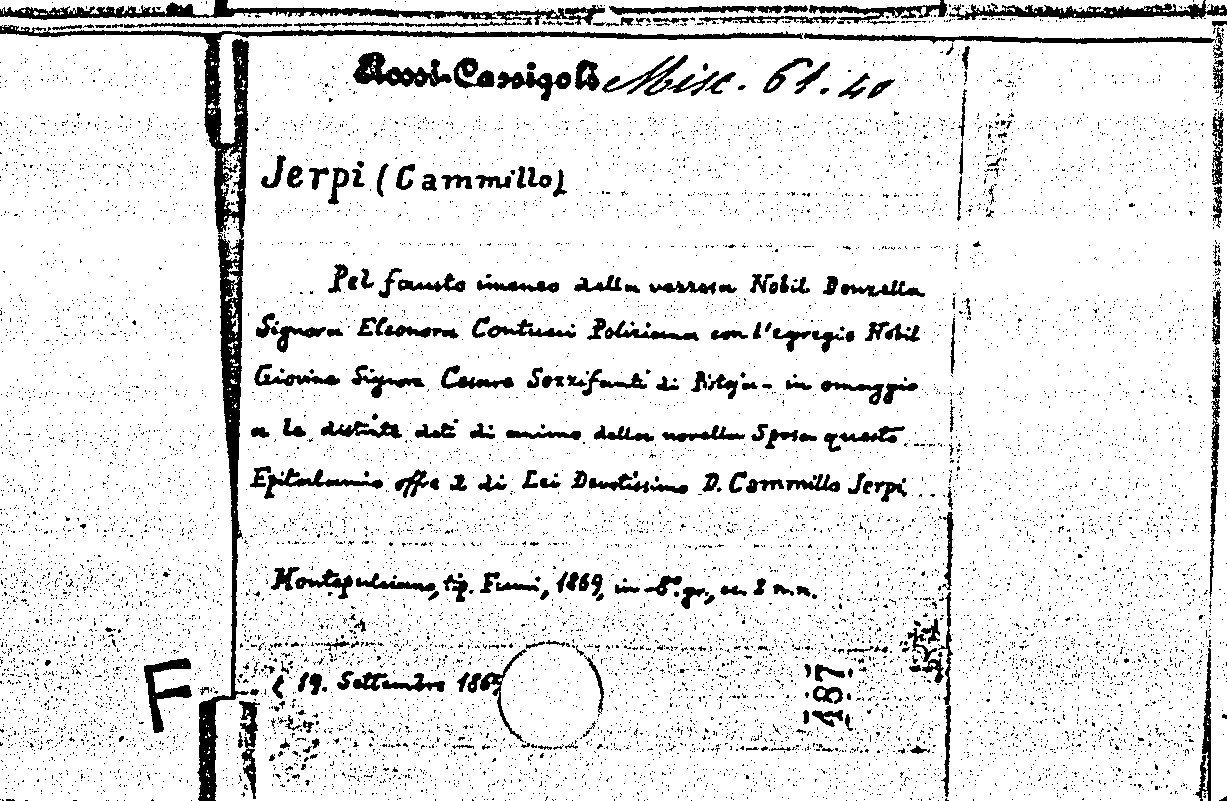 Rossi-Cassigoli Misc. 61.40
Jerpi (Cammillo)
Pel fausto imeneo della vezzosa Nobil Donzella
Signora Eleonora Contucci Poliziana con l'egregio Nobil
Giovine Signore Cesare Sozzifanti di Pistoja - in omaggio
a le distinte doti di animo della novella Sposa questo
Epitalamio offre il di Lei Devotissimo D. Cammillo Jerpi
Montepulciano, tip. Fumi, 1869, in-8° gr., cc. 2 n.n.
( 19. Settembre 1869
187
F